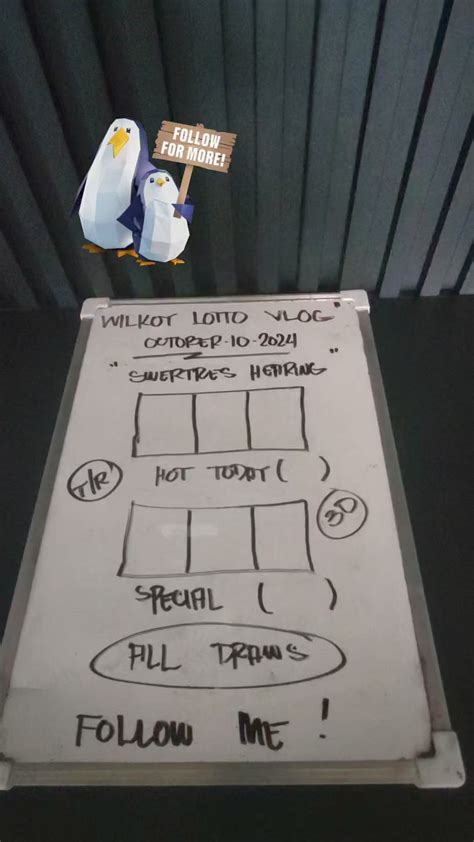 FOLLOW
FOR MORE!
WILKOT LOTTO VLOG"
OCTOBER-10-2024
"SWERTRES HEARING"
HOT TODAY ( )
T/R
3D
SPECIAL ( )
ALL DRAWS
FOLLOW ME !